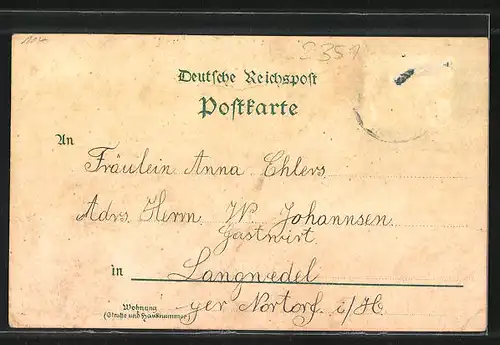 104
2351
Deutsche Reichspost
Postkarte
An
Fräulein Anna Ehlers
Adrs. Herrn W. Johannsen
Gastwirt
in Langwedel
Wohnung
(Straße und Hausnummer)
per Nortorf i/H